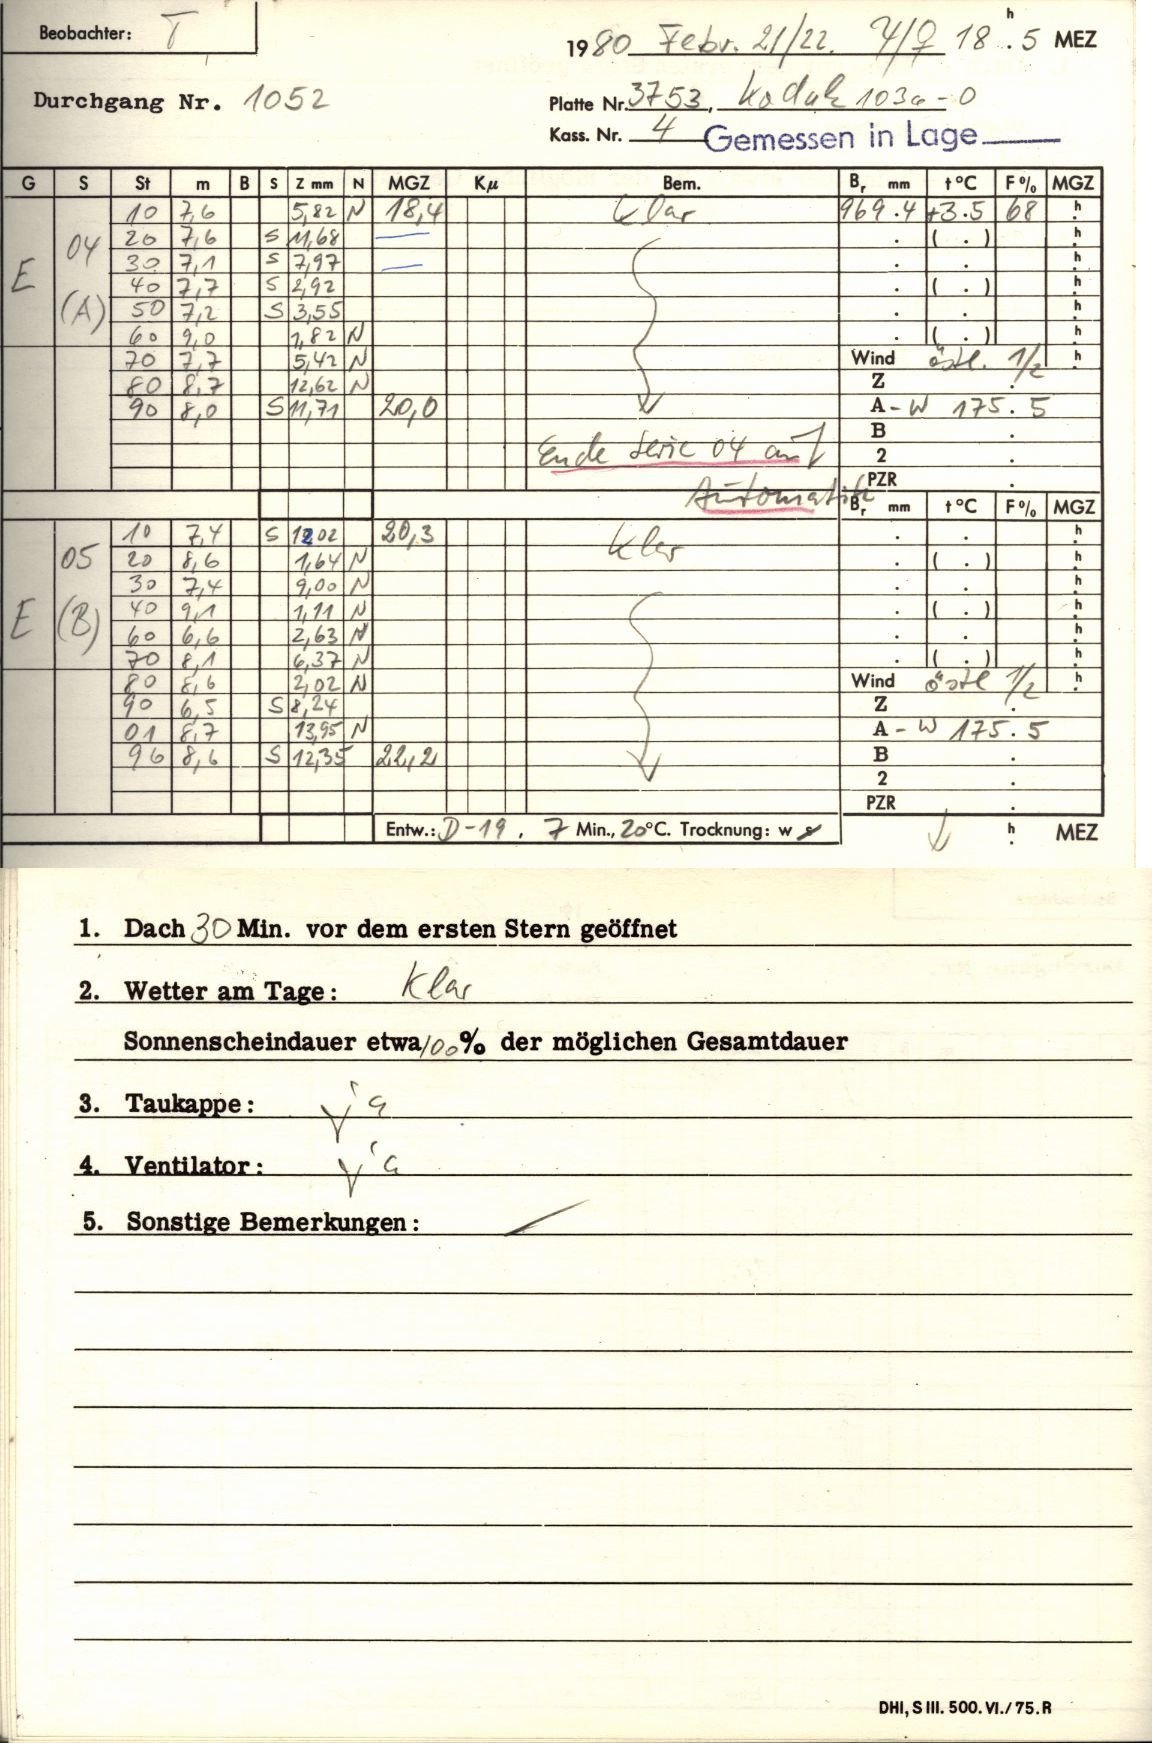 Beobachter: T
1980 Febr. 21/22. ♃/♀ 18 h . 5 MEZ
Durchgang Nr. 1052
Platte Nr. 3753, Kodak 103a-O
Kass. Nr. 4 Gemessen in Lage
G S St m B S Z mm N MGZ Kμ Bem. Br mm t °C F % MGZ
10 7,6 5,82 N 18,4 klar 969.4 +3.5 68 h
04 20 7,6 S 11,68 . ( . ) h
E 30 7,1 S 7,97 . . h
40 7,7 S 2,92 . ( . ) h
(A) 50 7,2 S 3,55 . . h
60 9,0 1,82 N . ( . ) h
70 7,7 5,42 N Wind östl. 1/2 h
80 8,7 12,62 N Z .
90 8,0 S 11,71 20,0 A - W 175.5
B .
Ende Serie 04 auf 2 .
Automatik PZR .
Br mm t °C F % MGZ
10 7,4 S 1202 20,3 klar . . h
05 20 8,6 1,64 N . ( . ) h
30 7,4 9,00 N . . h
E (B) 40 9,1 1,11 N . ( . ) h
60 6,6 2,63 N . . h
70 8,1 6,37 N . ( . ) h
80 8,6 2,02 N Wind östl 1/2 h
90 6,5 S 8,24 Z .
01 8,7 13,95 N A - W 175.5
96 8,6 S 12,35 22,2 B .
2 .
PZR .
Entw.: D-19, 7 Min., 20°C. Trocknung: w h MEZ
1. Dach 30 Min. vor dem ersten Stern geöffnet
2. Wetter am Tage: klar
Sonnenscheindauer etwa 100% der möglichen Gesamtdauer
3. Taukappe: ja
4. Ventilator: ja
5. Sonstige Bemerkungen: /
DHI, S III. 500. VI./75. R